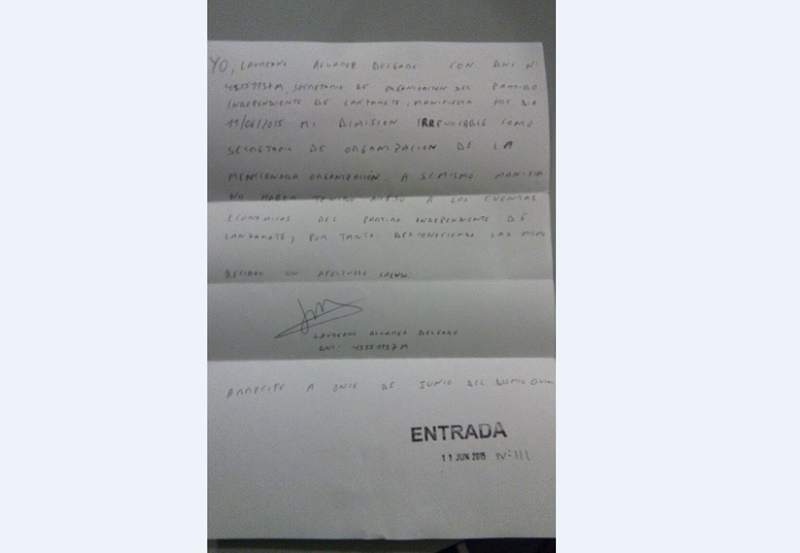 YO, LAUREANO ALVAREZ DELGADO CON DNI Nº
SECRETARIO DE ORGANIZACION DEL PARTIDO
INDEPENDIENTE DE LANZAROTE, MANIFIESTO HOY DIA
11/06/2015 MI DIMISION IRREVOCABLE COMO
SECRETARIO DE ORGANIZACION DE LA
MENCIONADA ORGANIZACIÓN. A SI MISMO
NO HABER TENIDO ACCESO A LAS CUENTAS
ECONOMICAS DEL PARTIDO INDEPENDIENTE DE
LANZAROTE, POR TANTO DESCONOCIENDO LAS
RECIBAN UN AFECTUOSO SALUDO.
LAUREANO ALVAREZ DELGADO
DNI:
ARRECIFE A ONCE DE JUNIO DEL
ENTRADA
11 JUN 2015 Nº 111